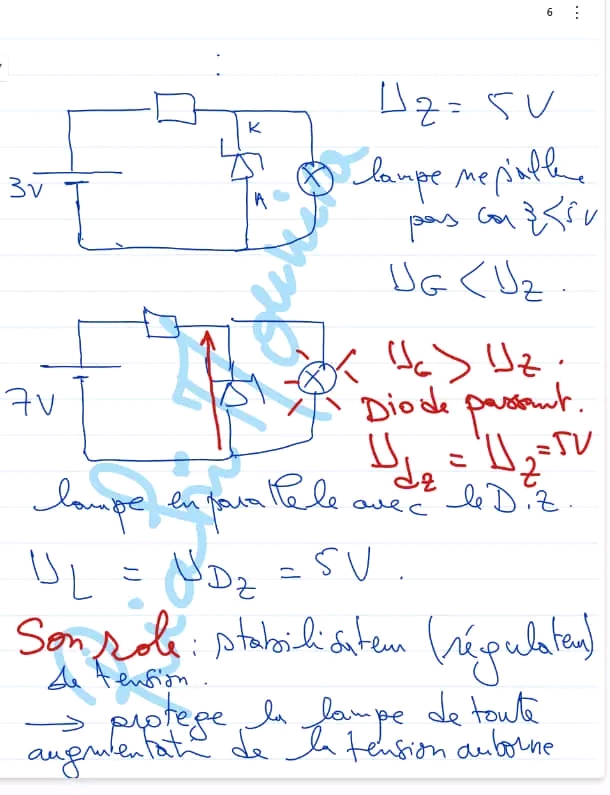 6
U_Z = 5V
K
3V
A
lampe ne s'allume
pas car 3 < 5V
U_G < U_Z.
U_G > U_Z.
7V
Diode passant.
U_dz = U_Z = 5V
lampe en parallele avec le D.Z.
U_L = U_DZ = 5V.
Son role : stabilisateur (régulateur)
de tension.
→ protège la lampe de toute
augmentat° de la tension auborne
Riahi Mounira